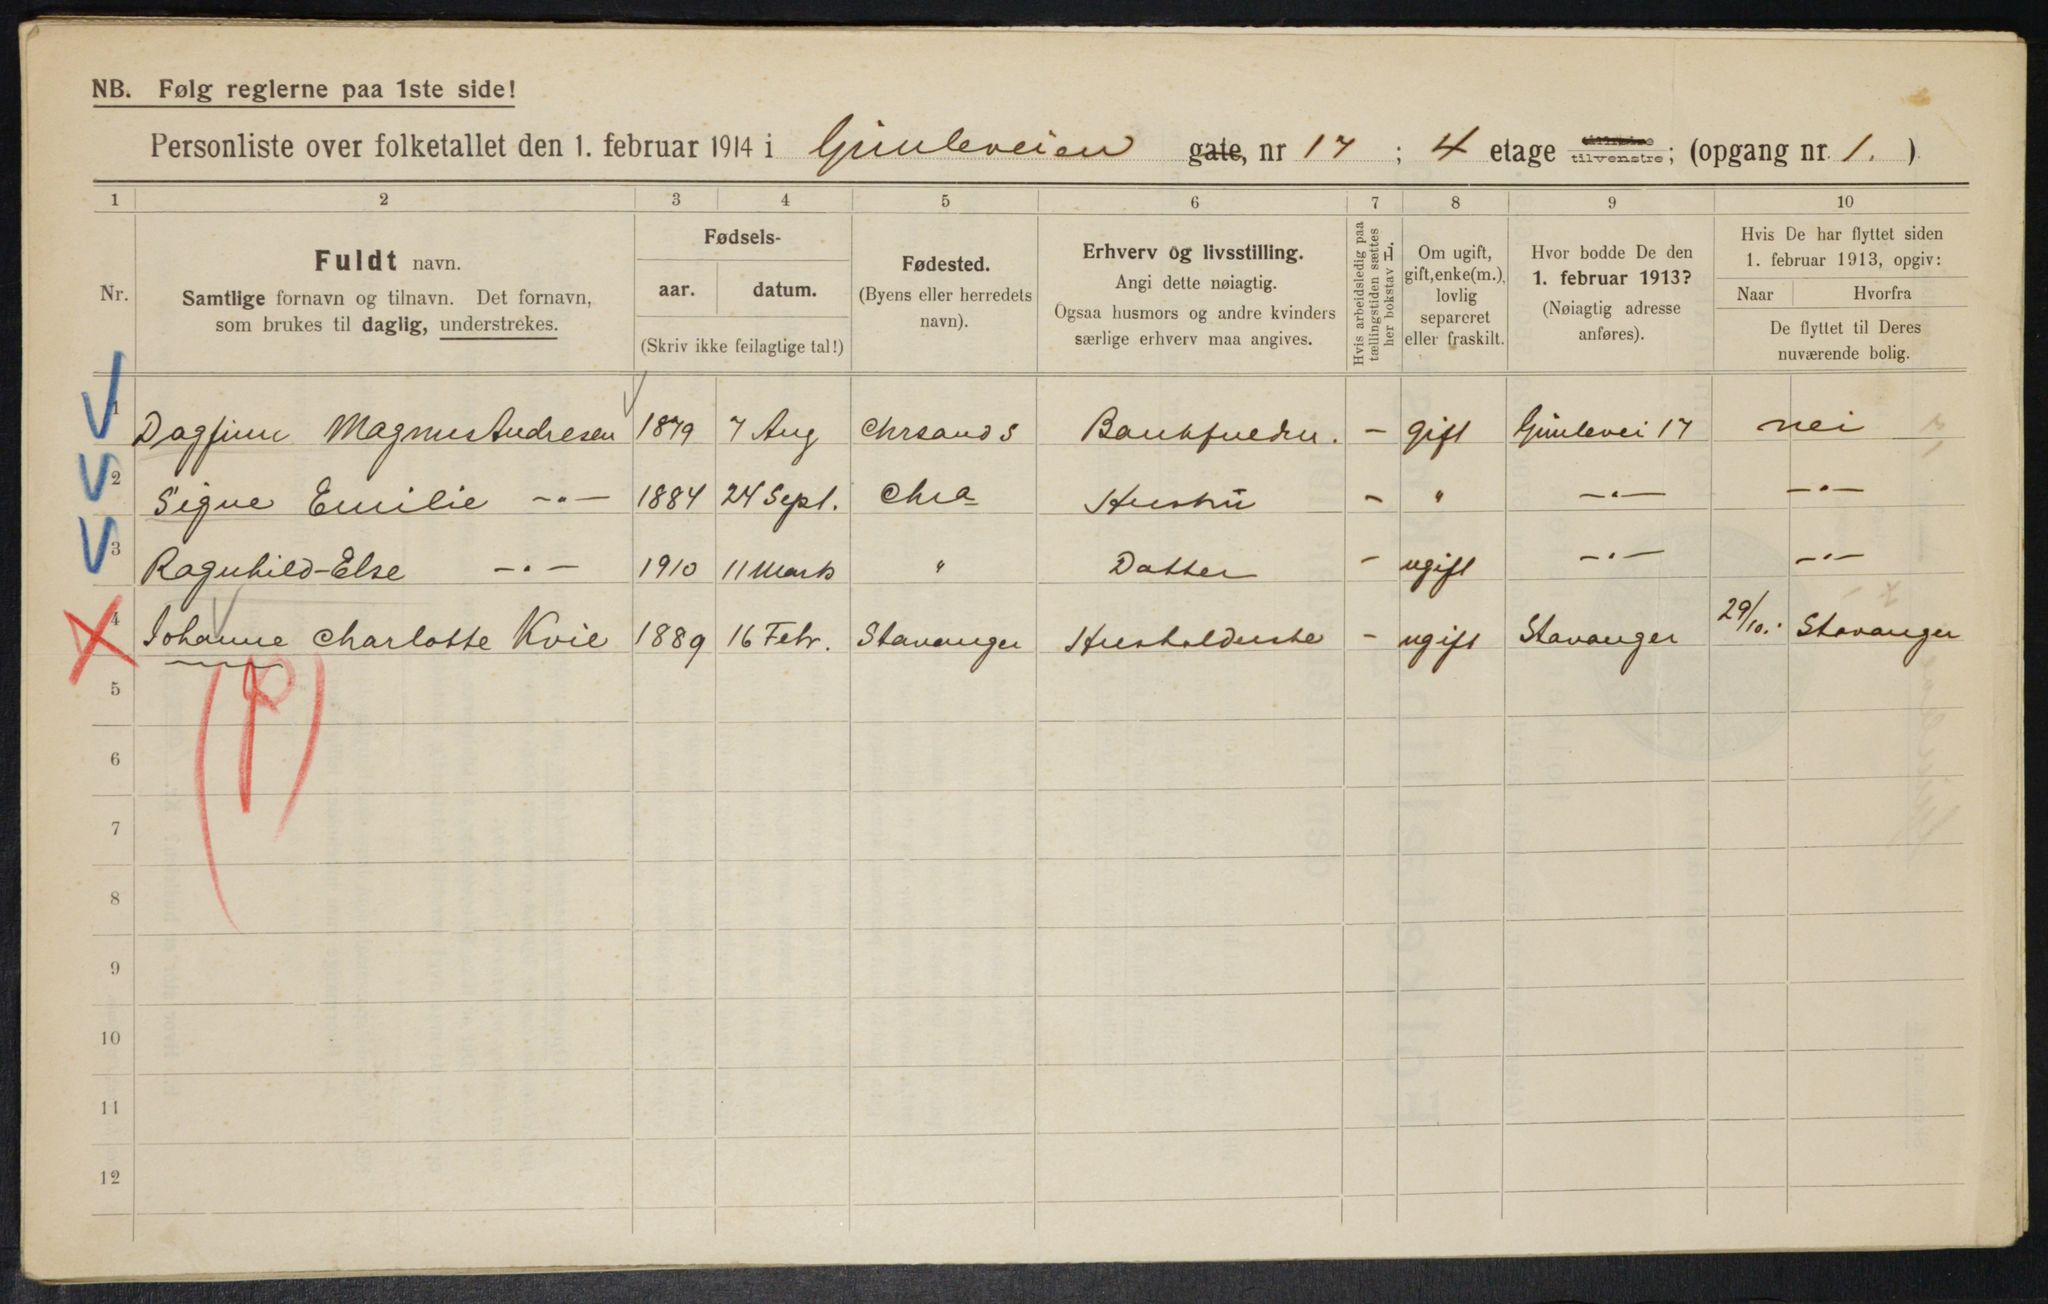 NB. Følg reglerne paa 1ste side!
Personliste over folketallet den 1. februar 1914 i Gimleveien gate, nr 17 ; 4 etage tilvenstre; (opgang nr. 1. )
1 2 3 4 5 6 7 8 9 10
Nr.
Fuldt navn.
Samtlige fornavn og tilnavn. Det fornavn,
som brukes til daglig, understrekes.
Fødsels-
aar. datum.
(Skriv ikke feilagtige tal!)
Fødested.
(Byens eller herredets
navn).
Erhverv og livsstilling.
Angi dette nøiagtig.
Ogsaa husmors og andre kvinders
særlige erhverv maa angives.
Hvis arbeidsledig paa
tællingstiden sættes
her bokstav L.
Om ugift,
gift, enke(m.),
lovlig
separeret
eller fraskilt.
Hvor bodde De den
1. februar 1913?
(Nøiagtig adresse
anføres).
Hvis De har flyttet siden
1. februar 1913, opgiv:
Naar Hvorfra
De flyttet til Deres
nuværende bolig.
1 Dagfinn Magnus Andresen 1879 7 Aug Chrsand S Bankfuldm. – gift Gimlevei 17 nei
2 Signe Emilie –"– 1884 24 Sept. Chra Hustru – " –"– –"–
3 Ragnhild-Else –"– 1910 11 Marts " Datter – ugift –"– –"–
4 Johanne Charlotte Kvie 1889 16 Febr. Stavanger Husholderske – ugift Stavanger 29/10. Stavanger
5
6
7
8
9
10
11
12